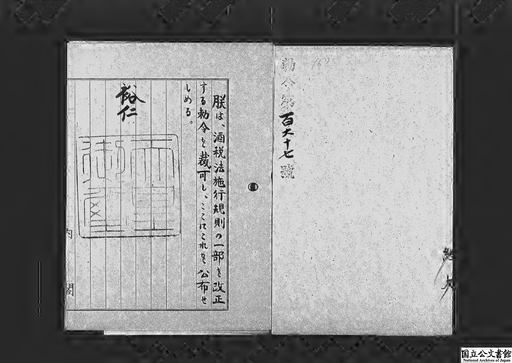 勅令第百六十七號
朕は、酒税法施行規則の一部を改正
する勅令を裁可し、ここにこれを公布せ
しめる。
裕仁
御璽
内閣
国立公文書館
National Archives of Japan